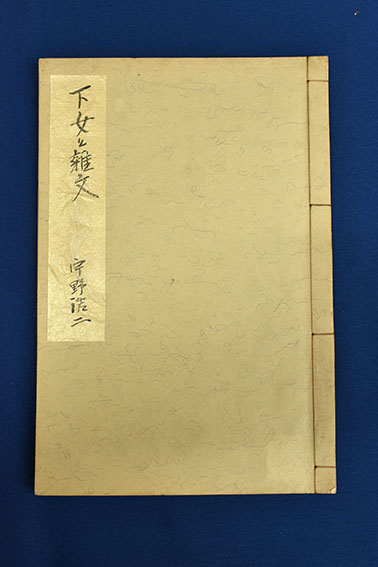 下女と雑文
宇野浩二